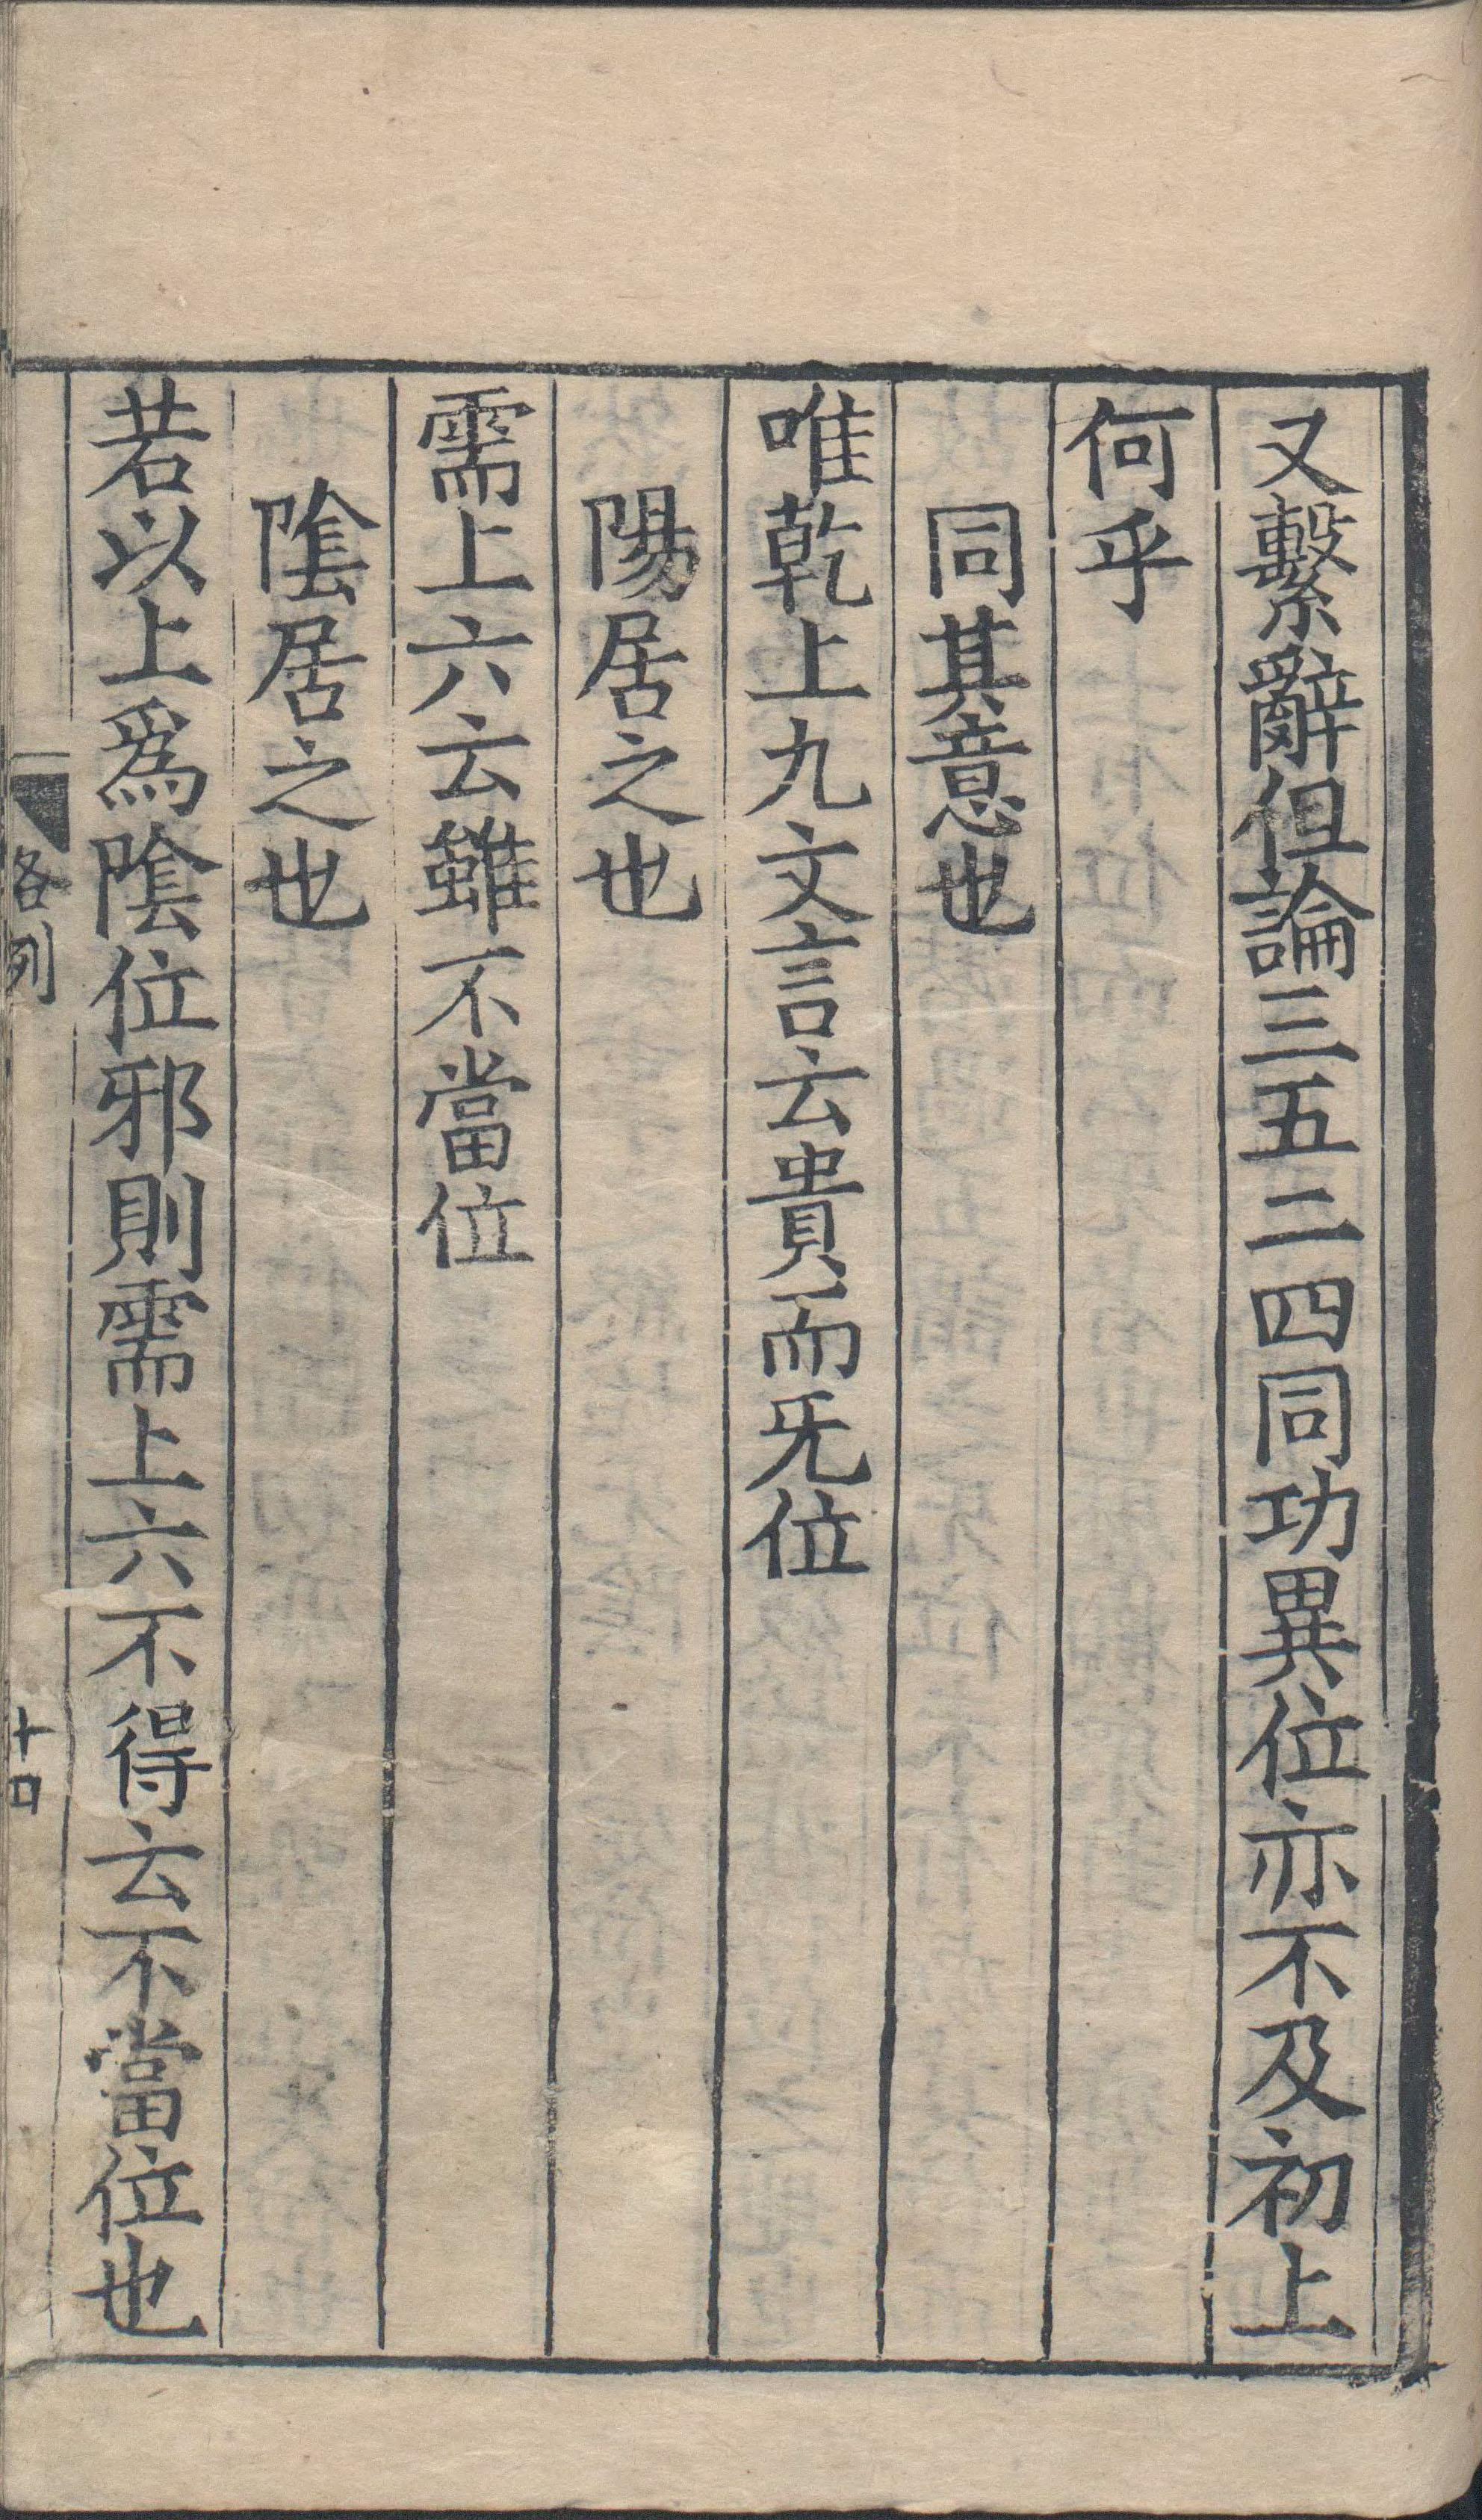 又繫辭但論三五二四同功異位亦不及初上
何乎
同其意也
唯乾上九文言云貴而无位
陽居之也
需上六云雖不當位
隂居之也
若以上爲隂位邪則需上六不得云不當位也
各列
十口